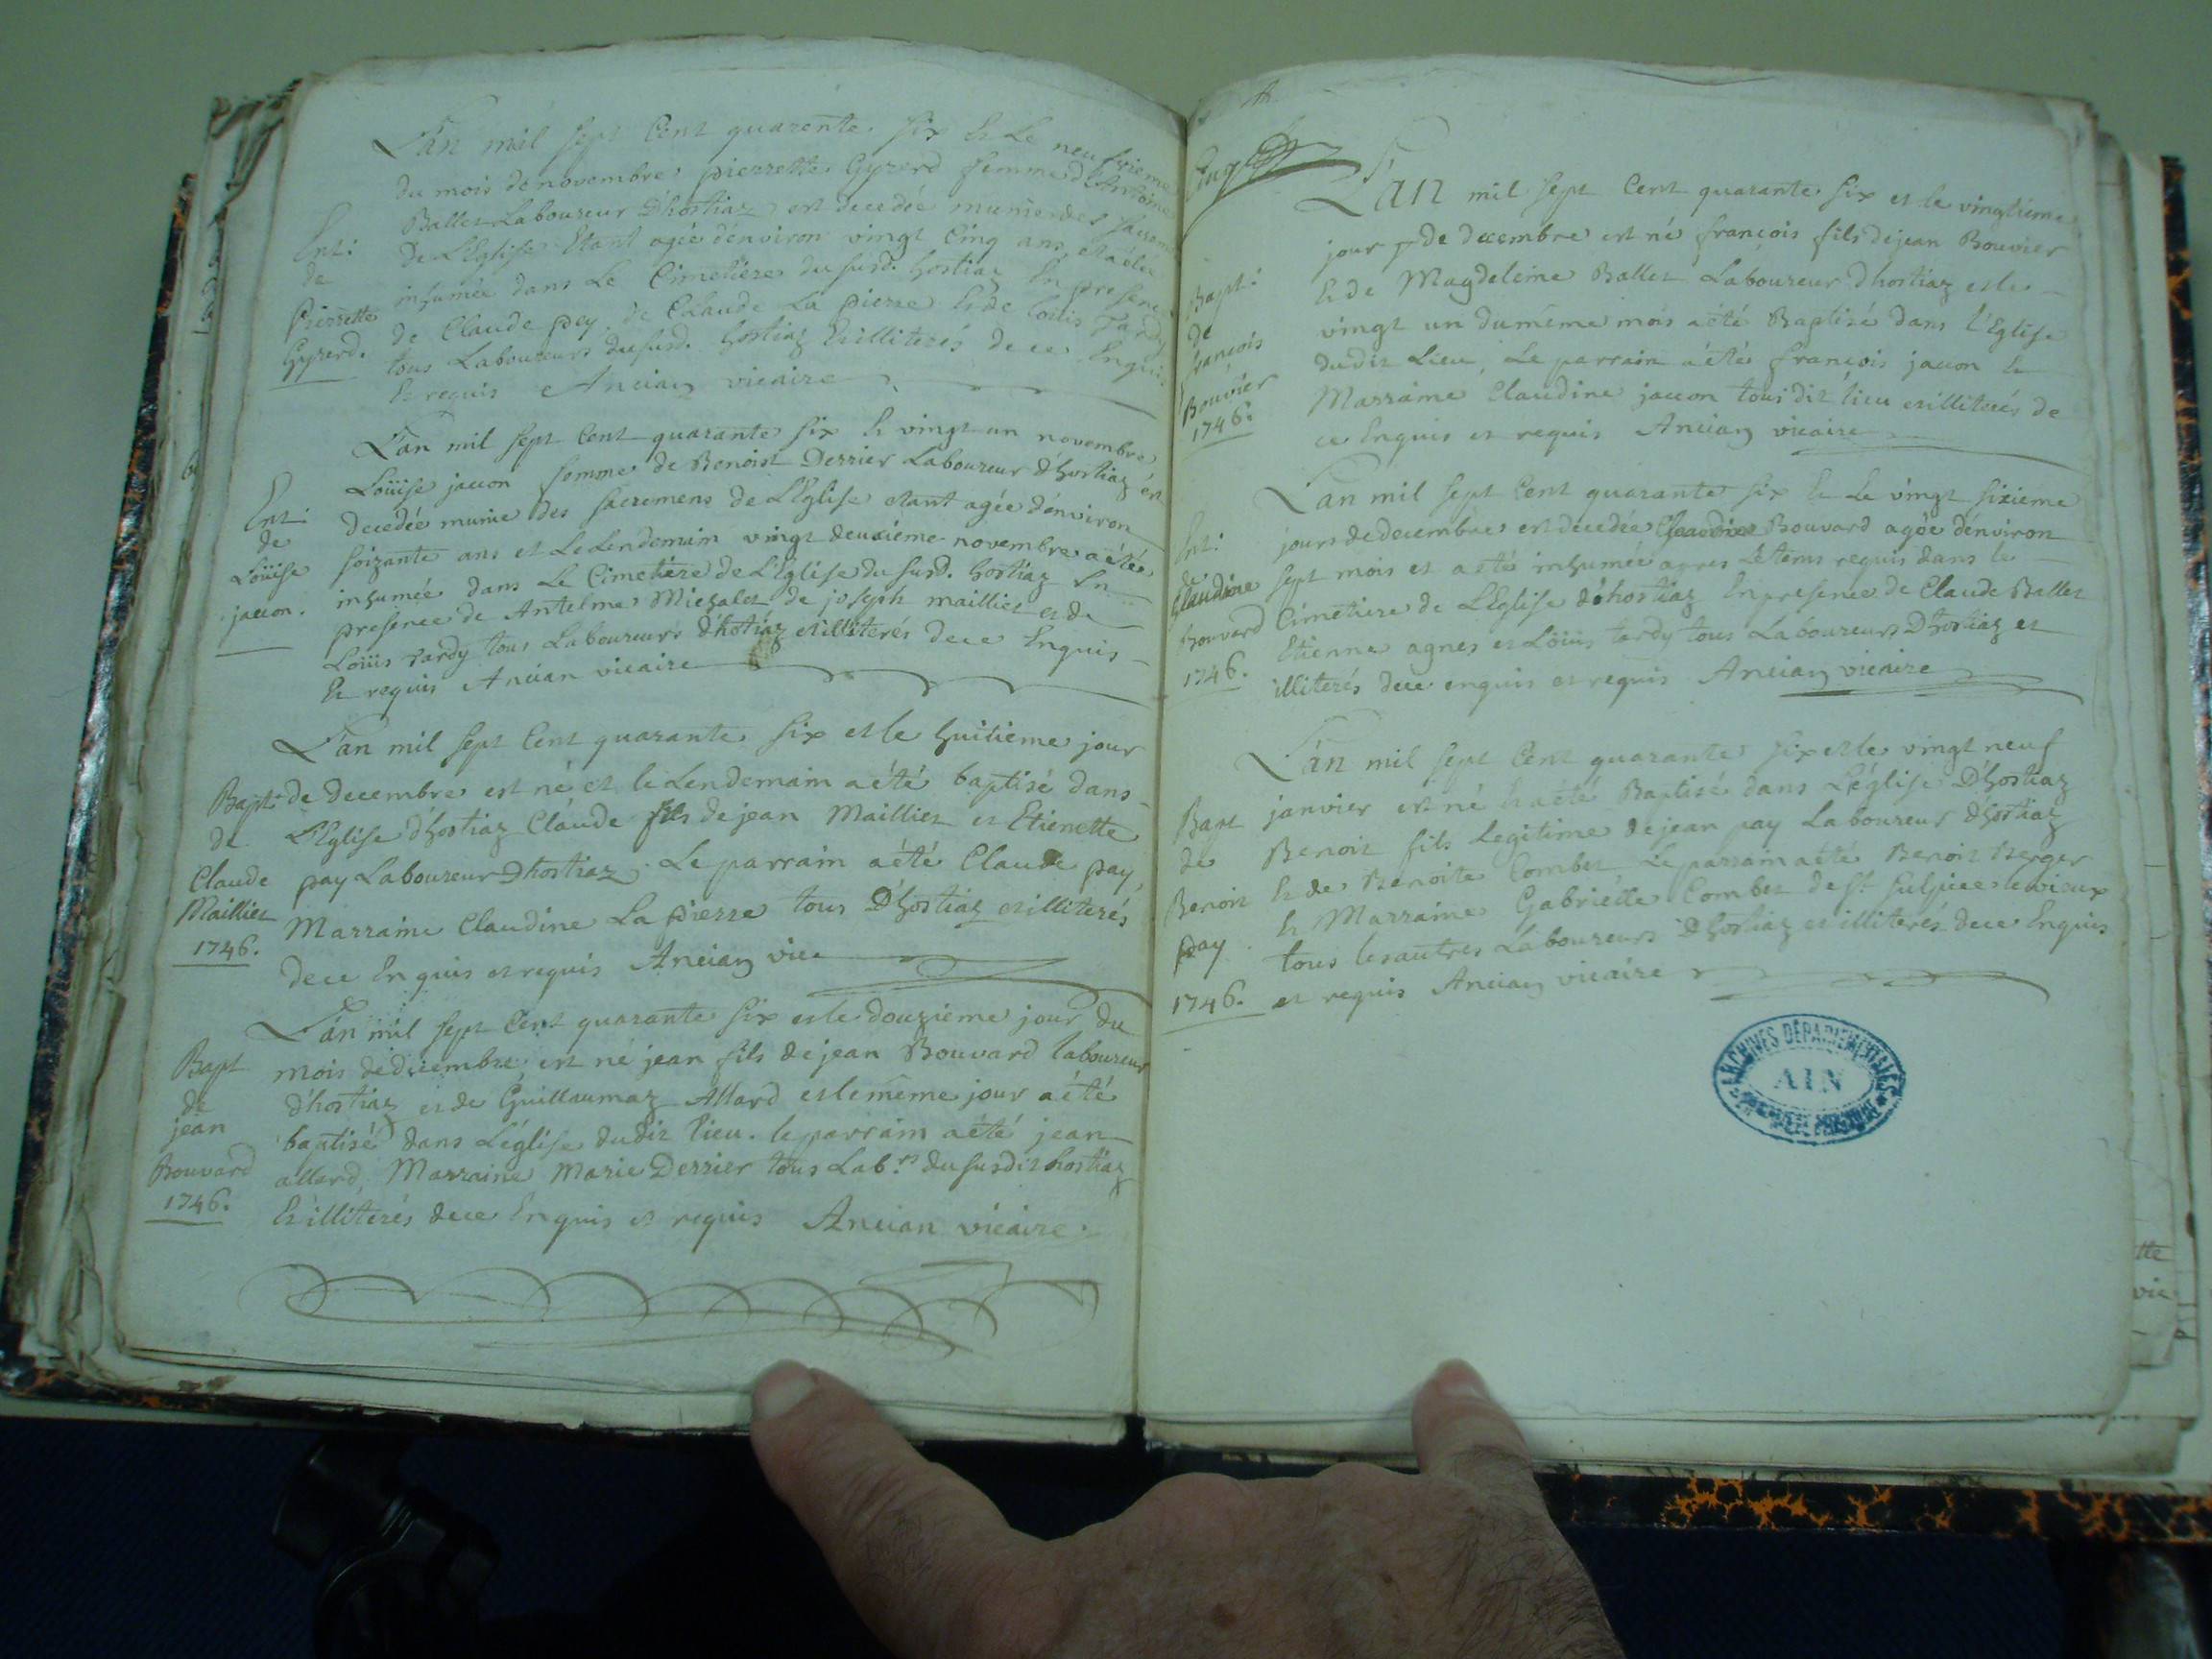 L'an mil sept Cent quarente six Et Le neufvieme
du mois de novembre pierrette Gyrerd femme d'Antoine
Ballet Laboureur D'hostiaz est decedée munie des sacrem
de L'Eglise Etant agée d'énviron vingt Cinq ans, et a été
inhumée dans Le Cimetière du susd. hostiaz En presence
de Claude pey, de Claude La pierre Et de Loüis Tardy
tous Laboureurs du susd. hostiaz Et illiterés de ce Enquis
Et requis Ancian vicaire
Ent:
de
Pierrette
Gyrerd.
L'an mil sept Cent quarante six Et vingt un novembre
Loüise jacon femme de Benoist Derrier Laboureur d'hostiaz est
decedée munie des sacremens de L'Eglise etant agée d'énviron
soixante ans et Le Lendemain vingt deuxiéme novembre a été
inhumée dans Le Cimetière de L'Eglise du susd. hostiaz En
presence de Antelme Michalet de joseph maillier et de
Loüis tardy tous Laboureurs d'hostiaz et illiterés de ce Enquis
Et requis Ancian vicaire
Ent:
de
Loüise
jacon.
L'an mil sept Cent quarante six et le huitième jour
de decembre est né et le Lendemain a été baptisé dans
L'Eglise d'hostiaz Claude fils de jean Maillier et Etienette
pay Laboureur D'hostiaz. Le parrain a été Claude pay,
Marraine Claudine La pierre tous D'hostiaz et illiterés
de ce Enquis et requis Ancian vic.
Bapt
de
Claude
Maillier
1746.
L'an mil sept Cent quarante six et le douzième jour du
mois de dicembre est né jean fils de jean Bouvard laboureur
d'hostiaz et de Guillaumaz Allard et le même jour a été
baptisé dans L'église dudit lieu. le parrain a été jean
allard, Marraine Marie Derrier tous Lab.rs du susdit hostiaz
Et illiterés de ce Enquis et requis Ancian vicaire.
Bapt
de
jean
Bouvard
1746.
L'an mil sept Cent quarante six et le vingtiéme
jour de decembre est né françois fils de jean Bouvier
Et de Magdeleine Ballet Laboureur d'hostiaz et le
vingt un du même mois a été Baptisé dans l'Eglise
dudit Lieu, Le parrain a été françois jacon Et
Marraine Claudine jacon tous dit lieu et illiterés de
ce Enquis et requis Ancian vicaire
Bapt:
de
françois
Bouvier
1746.
L'an mil sept Cent quarante six Et Le vingt sixieme
jours de decembre est decedée Claudine Bouvard agée d'énviron
sept mois et a été inhumée apres Le tems requis dans le
Cimetiere de L'Eglise d'hostiaz En presence de Claude Ballet
Etienne agnes et Loüis tardy tous Laboureurs D'hostiaz et
illiterés de ce enquis et requis Ancian vicaire
Ent:
de
Claudine
bouvard
1746.
L'an mil sept Cent quarante six et le vingt neuf
janvier est né Et a été Baptisé dans L'église D'hostiaz
Benoit fils Legitime de jean pay Laboureur d'hostiaz
Et de Benoite Combet, Le parrain a été Benoit Berger
Et Marraine Gabriélle Combet de St. sulpice le vieux
tous les autres Laboureurs D'hostiaz et illiterés de ce Enquis
et requis Ancian vicaire
Bapt
de
Benoit
pay
1746.
ARCHIVES DÉPARTEMENTALES
AIN